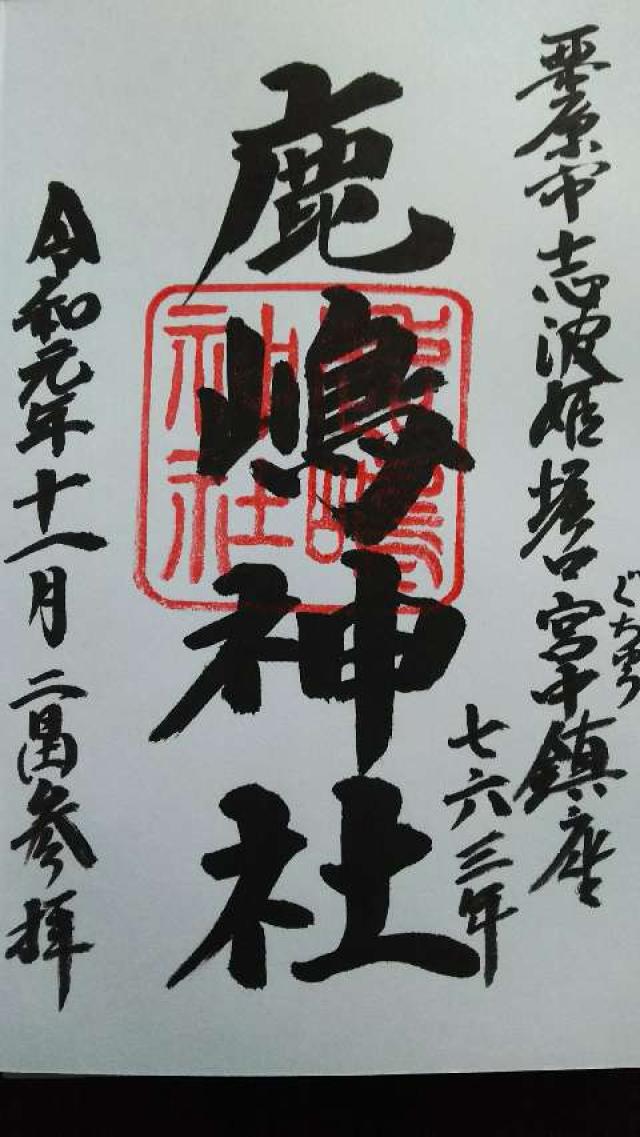 栗原市志波姫堀口宮中鎮座
ぐちまつ
七六三年
鹿嶋神社
鹿嶋神社
令和元年十一月二十四日参拝